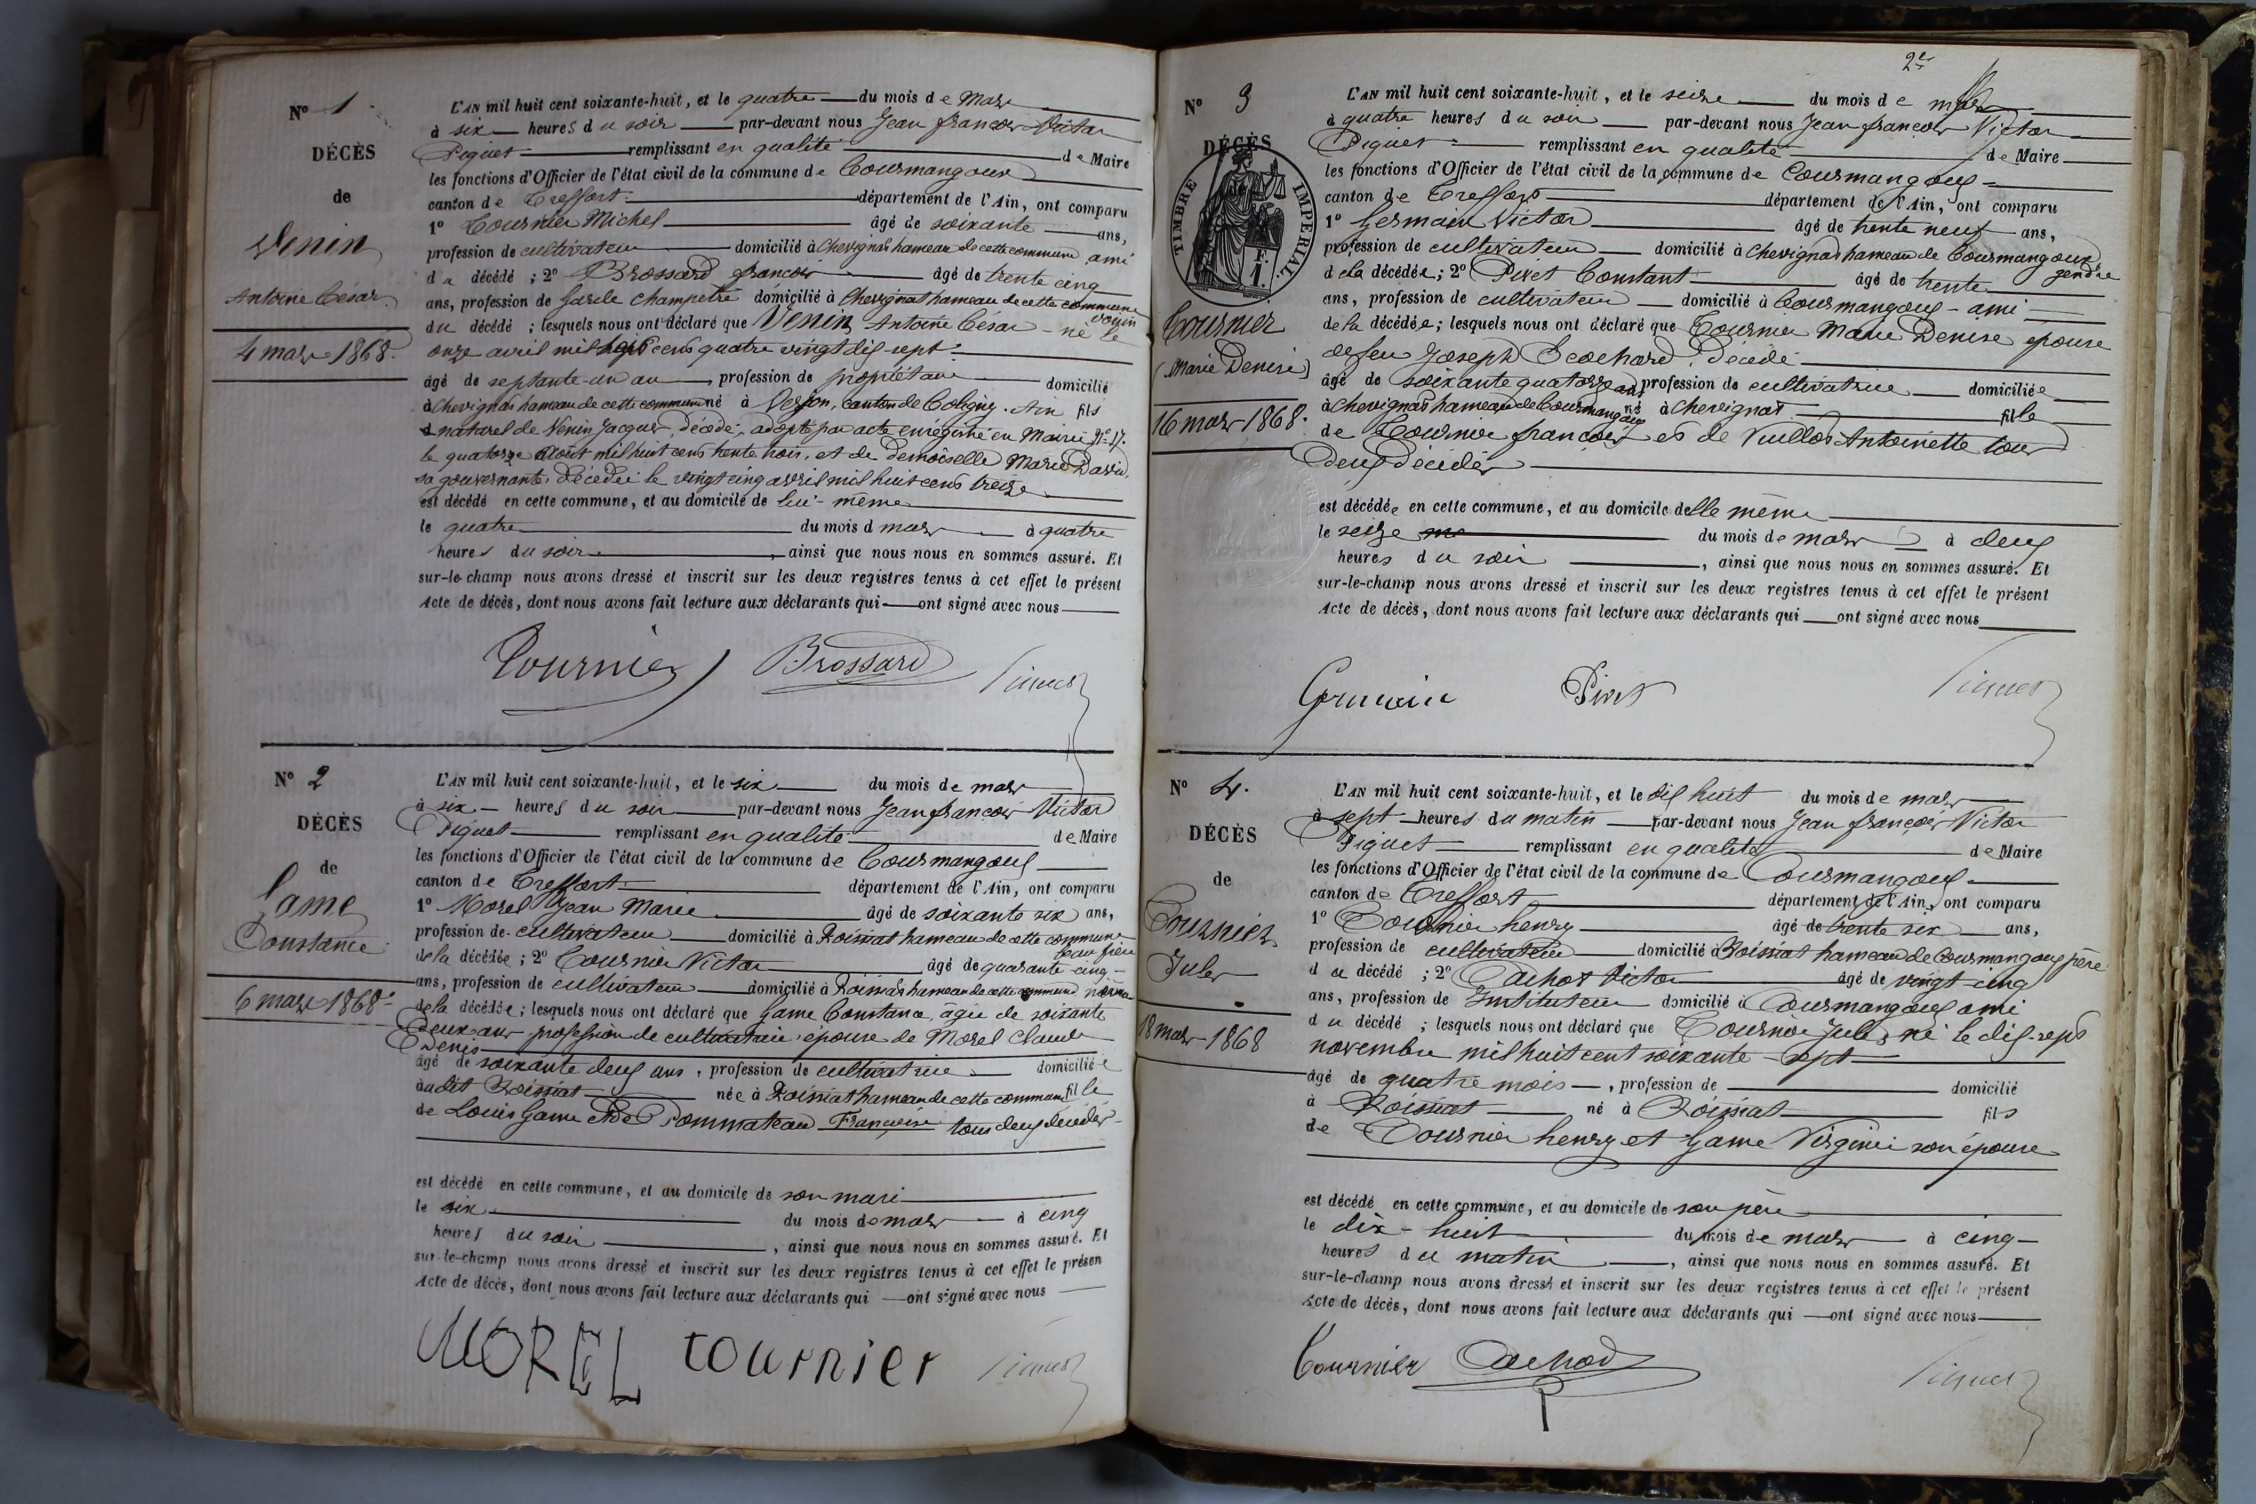 N° 1
DÉCÈS
de
Venin
Antoine César
4 mars 1868.
L'AN mil huit cent soixante-huit, et le quatre du mois de Mars
à six heures du soir par-devant nous Jean françois Victor
Piquet remplissant en qualité de Maire
les fonctions d'Officier de l'état civil de la commune de Courmangoux
canton de Treffort département de l'Ain, ont comparu
1° Tournier Michel âgé de soixante ans,
profession de cultivateur domicilié à Chevignat hameau de cette commune ami
du décédé ; 2° Brossard françois âgé de trente cinq
ans, profession de Garde champêtre domicilié à Chevignat hameau de cette commune
voisin
du décédé ; lesquels nous ont déclaré que Venin Antoine César né le
onze avril mil sept cent quatre vingt dix sept
âgé de septante-un an, profession de propriétaire domicilié
à Chevignat hameau de cette commune né à Verjon, canton de Coligny. Ain fils
naturel de Venin Jacques, décédé, adopté par acte enregistré en Mairie N° 17.
le quatorze Août mil huit cent trente trois, et de Demoiselle Marie David,
sa gouvernante, décédée le vingt cinq avril mil huit cent treize
est décédé en cette commune, et au domicile de lui-même
le quatre du mois d mars à quatre
heures du soir, ainsi que nous nous en sommes assuré. Et
sur-le-champ nous avons dressé et inscrit sur les deux registres tenus à cet effet le présent
Acte de décès, dont nous avons fait lecture aux déclarants qui ont signé avec nous
Tournier Brossard Piquet
N° 2
DÉCÈS
de
Game
Constance
6 mars 1868
L'AN mil huit cent soixante-huit, et le six du mois de mars
à six heures du soir par-devant nous Jean françois Victor
Piquet remplissant en qualité de Maire
les fonctions d'Officier de l'état civil de la commune de Courmangoux
canton de Treffort département de l'Ain, ont comparu
1° Morel Jean Marie âgé de soixante six ans,
profession de cultivateur domicilié à Roissiat hameau de cette commune
beau frère
de la décédée ; 2° Tournier Victor âgé de quarante-cinq
ans, profession de cultivateur domicilié à Roissiat hameau de cette commune
de la décédée ; lesquels nous ont déclaré que Game Constance, âgée de soixante
Deux ans profession de cultivatrice épouse de Morel Claude
Denis
âgé de soixante deux ans, profession de cultivatrice domiciliée
audit Roissiat née à Roissiat hameau de cette commune fille
de Louis Game et de Pommateau Françoise tous deux décédés
est décédé en cette commune, et au domicile de son mari
le six du mois de mars à cinq
heures du soir, ainsi que nous nous en sommes assuré. Et
sur-le-champ nous avons dressé et inscrit sur les deux registres tenus à cet effet le présen
Acte de décès, dont nous avons fait lecture aux déclarants qui ont signé avec nous
MOREL tournier Piquet
2e
N° 3
DÉCÈS
TIMBRE IMPÉRIAL
F.
1.
Tournier
(Marie Denise)
16 mars 1868.
L'AN mil huit cent soixante-huit, et le seize du mois de mars
à quatre heures du soir par-devant nous Jean françois Victor
Piquet remplissant en qualité de Maire
les fonctions d'Officier de l'état civil de la commune de Courmangoux
canton de Treffort département de l'Ain, ont comparu
1° Germain Victor âgé de trente neuf ans,
profession de cultivateur domicilié à Chevignat hameau de Courmangoux
gendre
de la décédée ; 2° Pivet Constant âgé de trente
ans, profession de cultivateur domicilié à Courmangoux ami
de la décédée ; lesquels nous ont déclaré que Tournier Marie Denise épouse
de feu Joseph Ecochard, décédé
âgé de soixante quatorze ans profession de cultivatrice domiciliée
à Chevignat hameau de Courmangoux né à Chevignat fille
de Tournier françois et de Vuillod Antoinette tous
Deux décédés
est décédée en cette commune, et au domicile d'elle même
le seize du mois de mars à deux
heures du soir, ainsi que nous nous en sommes assuré. Et
sur-le-champ nous avons dressé et inscrit sur les deux registres tenus à cet effet le présent
Acte de décès, dont nous avons fait lecture aux déclarants qui ont signé avec nous
Germain Pivet Piquet
N° 4.
DÉCÈS
de
Tournier
Jules
18 mars 1868
L'AN mil huit cent soixante-huit, et le dix huit du mois de mars
à sept heures du matin par-devant nous Jean françois Victor
Piquet remplissant en qualité de Maire
les fonctions d'Officier de l'état civil de la commune de Courmangoux
canton de Treffort département de l'Ain, ont comparu
1° Tournier henry âgé de trente six ans,
profession de cultivateur domicilié à Roissiat hameau de Courmangoux père
du décédé ; 2° Cachod Victor âgé de vingt-cinq
ans, profession de Instituteur domicilié à Courmangoux ami
du décédé ; lesquels nous ont déclaré que Tournier Jules, né le dix-sept
novembre mil huit cent soixante-sept
âgé de quatre mois, profession de domicilié
à Roissiat né à Roissiat fils
de Tournier henry et Game Virginie son épouse
est décédé en cette commune, et au domicile de son père
le dix-huit du mois de mars à cinq
heures du matin, ainsi que nous nous en sommes assuré. Et
sur-le-champ nous avons dressé et inscrit sur les deux registres tenus à cet effet le présent
Acte de décès, dont nous avons fait lecture aux déclarants qui ont signé avec nous
Tournier Cachod Piquet